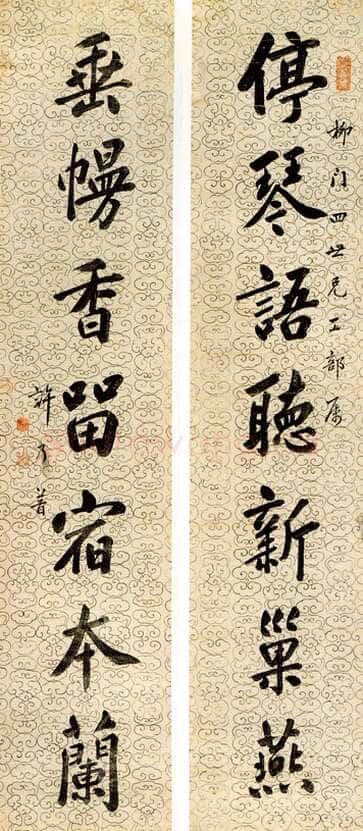 停琴語聽新巢燕
柳门四世兄工部属
垂幔香留宿本蘭
許乃普